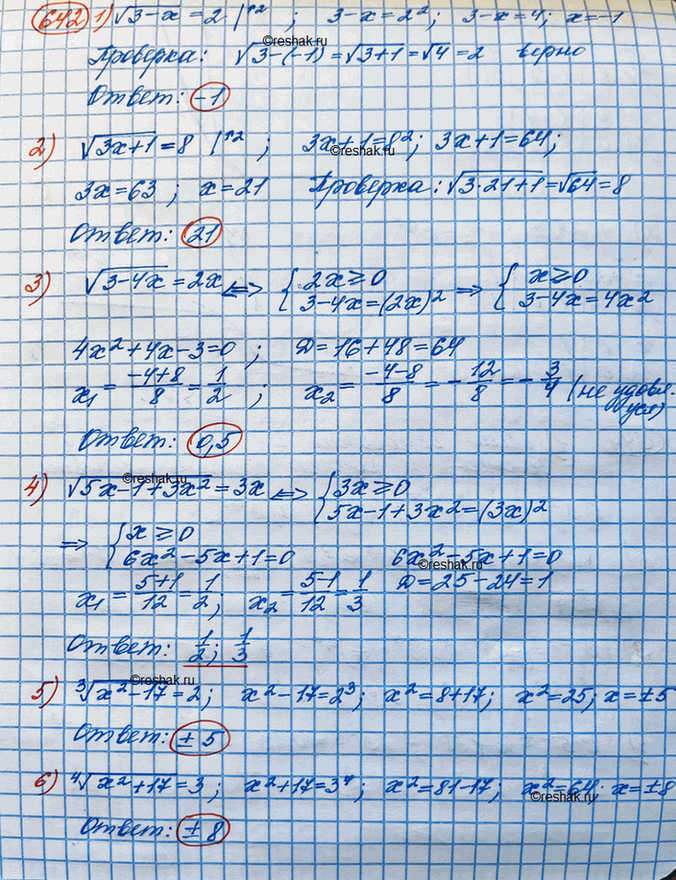 642 1) √3-x = 2 |↑2 ; 3-x=2²; 3-x=4; x=-1
©reshak.ru
Проверка: √3-(-1) = √3+1 = √4 = 2 верно
Ответ: -1
2) √3x+1 = 8 |↑2 ; 3x+1=8²; 3x+1=64;
©reshak.ru
3x=63 ; x=21 Проверка: √3·21+1 = √64 = 8
Ответ: 21
3) √3-4x = 2x <=> { 2x≥0 => { x≥0
3-4x=(2x)² 3-4x=4x²
4x²+4x-3=0 ; D=16+48=64
x₁ = -4+8/8 = 1/2 ; x₂ = -4-8/8 = -12/8 = -3/4 (не удовл. усл)
Ответ: 0,5
©reshak.ru
4) √5x-1+3x² = 3x <=> { 3x≥0
5x-1+3x²=(3x)²
=> { x≥0
6x²-5x+1=0 6x²-5x+1=0
©reshak.ru
x₁ = 5+1/12 = 1/2; x₂ = 5-1/12 = 1/3 D=25-24=1
Ответ: 1/2; 1/3
©reshak.ru
5) ³√x²-17 = 2; x²-17=2³; x²=8+17; x²=25; x=±5
Ответ: ±5
6) ⁴√x²+17 = 3; x²+17=3⁴; x²=81-17; x²=64; x=±8
©reshak.ru
Ответ: ±8